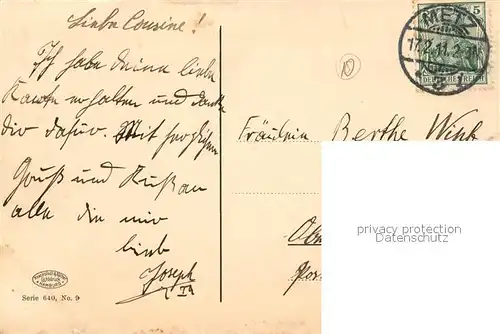 Liebe Cousine!
Ich habe deine liebe
Karte erhalten und danke
dir dafür. Mit herzlichem
Gruß und Kuß an
alle die mir
lieb
Joseph
Serie 640, No. 9
5
METZ
17.2.11.2
DEUTSCHES REICH
Fräulein Berthe
privacy protection
Datenschutz